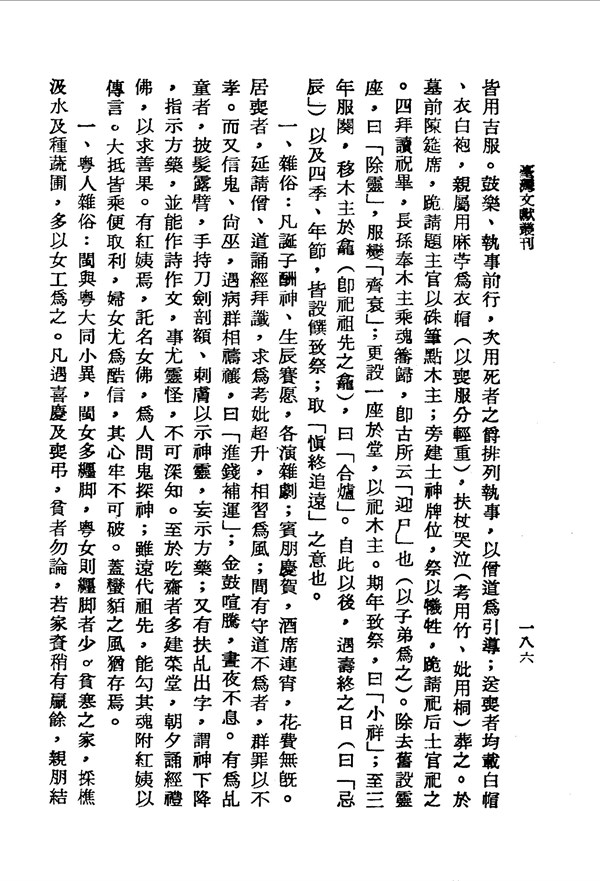 臺灣文獻叢刊
一八六
皆用吉服。鼓樂、執事前行,次用死者之爵排列執事,以僧道爲引導;送喪者均載白帽
、衣白袍,親屬用麻苧爲衣帽(以喪服分輕重),扶杖哭泣(考用竹、妣用桐)葬之。於
墓前陳筵席,跪請題主官以硃筆點木主;旁建土神牌位,祭以犧牲,跪請祀后土官祀之
。四拜讀祝畢,長孫奉木主乘魂轎歸,卽古所云「迎尸」也(以子弟爲之)。除去舊設靈
座,曰「除靈」,服變「齊衰」;更設一座於堂,以祀木主。期年致祭,曰「小祥」;至三
年服闋,移木主於龕(卽祀祖先之龕),曰「合爐」。自此以後,遇壽終之日(曰「忌
辰」)以及四季、年節,皆設饌致祭;取「愼終追遠」之意也。
一、雜俗:凡誕子酬神、生辰賽愿,各演雜劇;賓朋慶賀,酒席連宵,花費無旣。
居喪者,延請僧、道誦經拜讖,求爲考妣超升,相習爲風;間有守道不爲者,群罪以不
孝。而又信鬼、尙巫,遇病群相禱禳,曰「進錢補運」;金鼓喧騰,晝夜不息。有爲乩
童者,披髮露臂,手持刀劍剖額、刺膚以示神靈,妄示方藥;又有扶乩出字,謂神下降
,指示方藥,並能作詩作文,事尤靈怪,不可深知。至於吃齋者多建菜堂,朝夕誦經禮
佛,以求善果。有紅姨焉,託名女佛,爲人問鬼探神;雖遠代祖先,能勾其魂附紅姨以
傳言。大抵皆乘便取利,婦女尤爲酷信,其心牢不可破。蓋蠻貊之風猶存焉。
一、粤人雜俗:閩與粤大同小異,閩女多纏脚,粤女則纏脚者少。貧寒之家,採樵
汲水及種蔬圃,多以女工爲之。凡遇喜慶及喪弔,貧者勿論,若家資稍有贏餘,親朋結